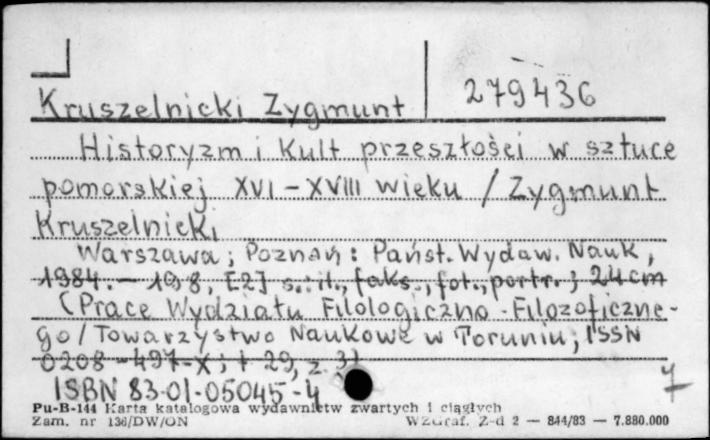 Kruszelnicki Zygmunt 279436
Historyzm i kult przeszłości w sztuce
pomorskiej XVI - XVIII wieku / Zygmunt
Kruszelnicki
Warszawa ; Poznań : Państ. Wydaw. Nauk,
1984. - 198, [2] s. : il., faks., fot., portr. ; 24 cm
(Prace Wydziału Filologiczno - Filozoficzne-
go / Towarzystwo Naukowe w Toruniu, ISSN
0208-497-X ; t. 29, z. 3)
ISBN 83-01-05045-4
Pu-B-144 Karta katalogowa wydawnictw zwartych i ciągłych
Zam. nr 136/DW/ON WZGraf. Z-d 2 — 844/83 — 7.880.000